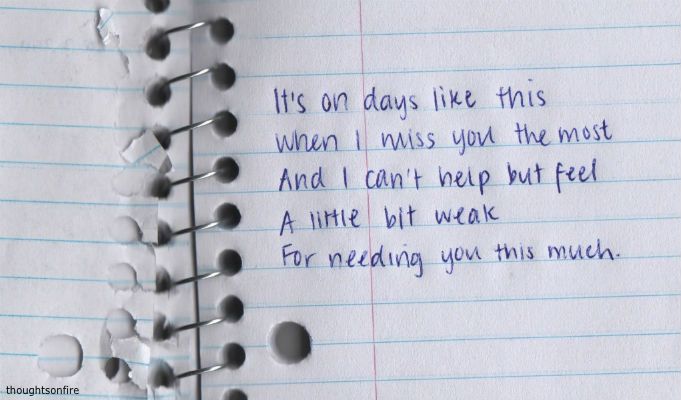 It's on days like this
when I miss you the most
And I can't help but feel
A little bit weak
For needing you this much.
thoughtsonfire